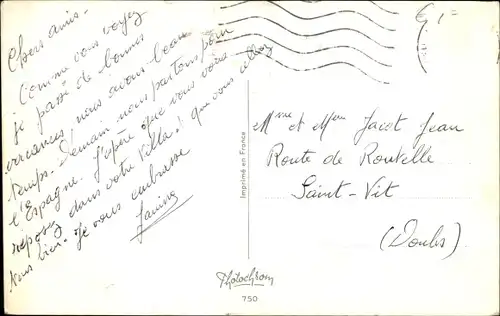 Chers amis.
Comme vous voyez
je passe de bonnes
vacances, nous avons beau
temps. Demain nous partons pour
l'Espagne. J'espère que vous vous
reposez dans votre Villa! que vous allez
tous bien. Je vous embrasse
Janine
Imprimé en France
Mme et Mr Jacot Jean
Route de Routelle
Saint-Vit
(Doubs)
Photochrom
750